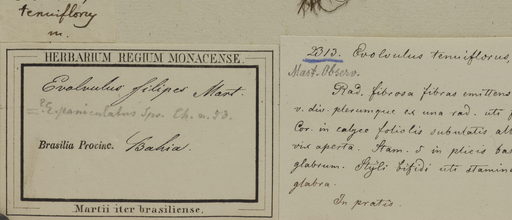 tenuiflorus
m.
HERBARIUM REGIUM MONACENSE.
Evolvulus filipes Mart.
? E. paniculatus Spr. Ch. n. 53.
Brasilia Provinc. Bahia.
Martii iter brasiliense.
2313. Evolvulus tenuiflorus,
Mart. Observ.
Rad. fibrosa fibras emittens
v. div. plerumque ex una rad. uti
Cor. in calyce foliolis subulatis
vix aperta. Stam. 5 in plicis
glabrum. Styli bifidi uti stamin
glabra.
In pratis.